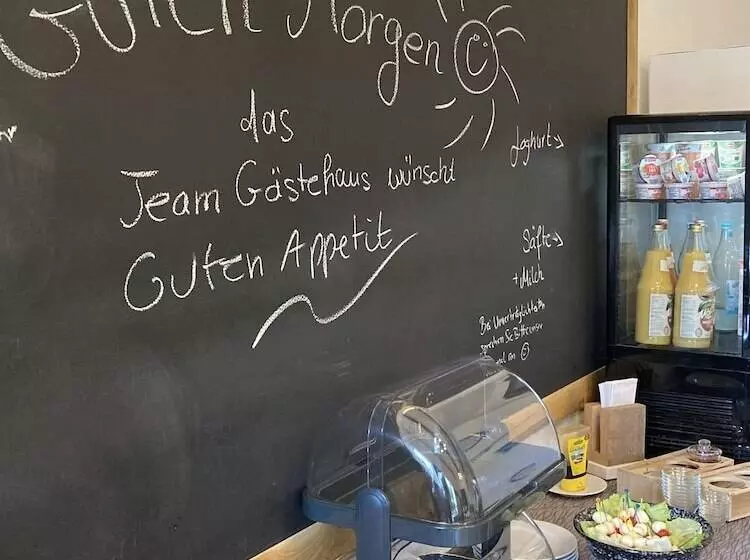 Guten Morgen
das
Team Gästehaus wünscht
Guten Appetit
Joghurt →
Säfte →
+ Milch
Bei Unverträglichkeiten
sprechen Sie Bitte unser
an ☺